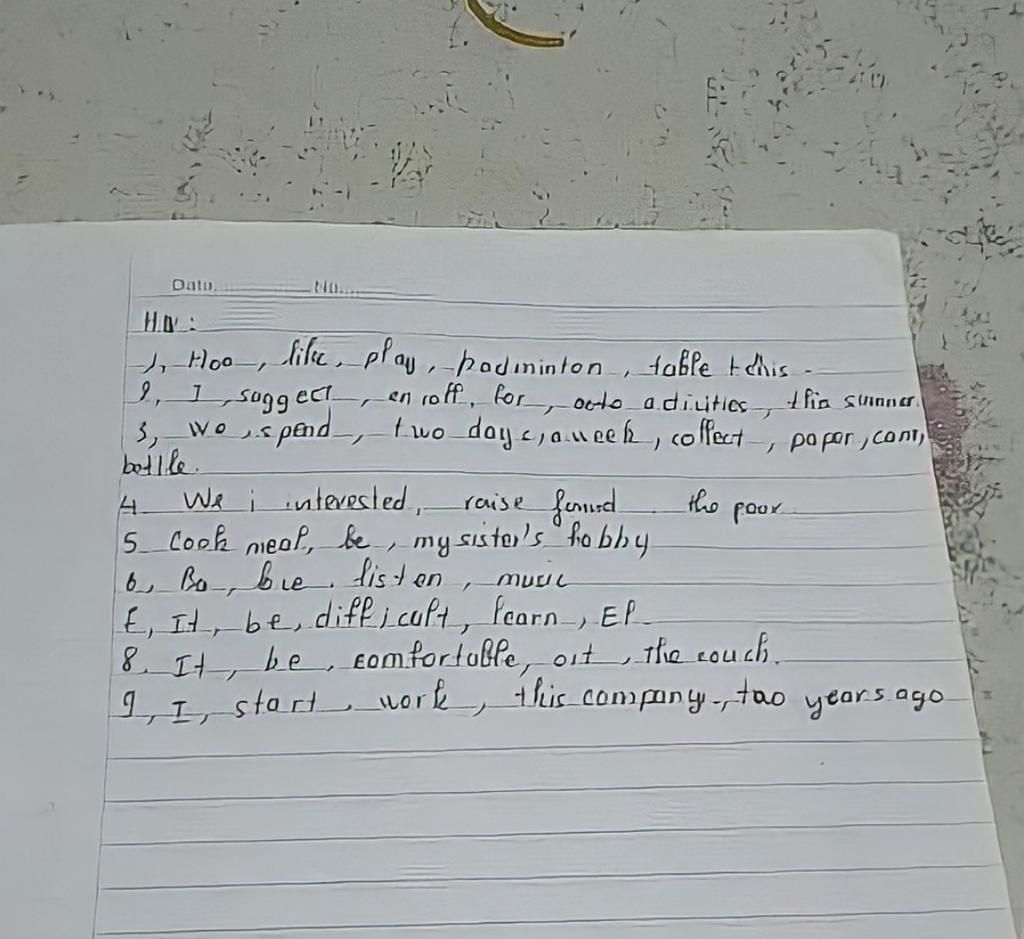 Date No.
H.W :
1, Hoa, like, play, badminton, table
2, I, suggect, for, activities, this summer.
3, We, spend, two days, a week, collect, paper, cans,
bottle.
4. We interested, raise the poor
5. Cook meal, be, my sister's hobby
6, listen, music
It, be, difficult, learn, E
8. It, be, comfortable, the couch.
9, I, start, work, this company, two years ago